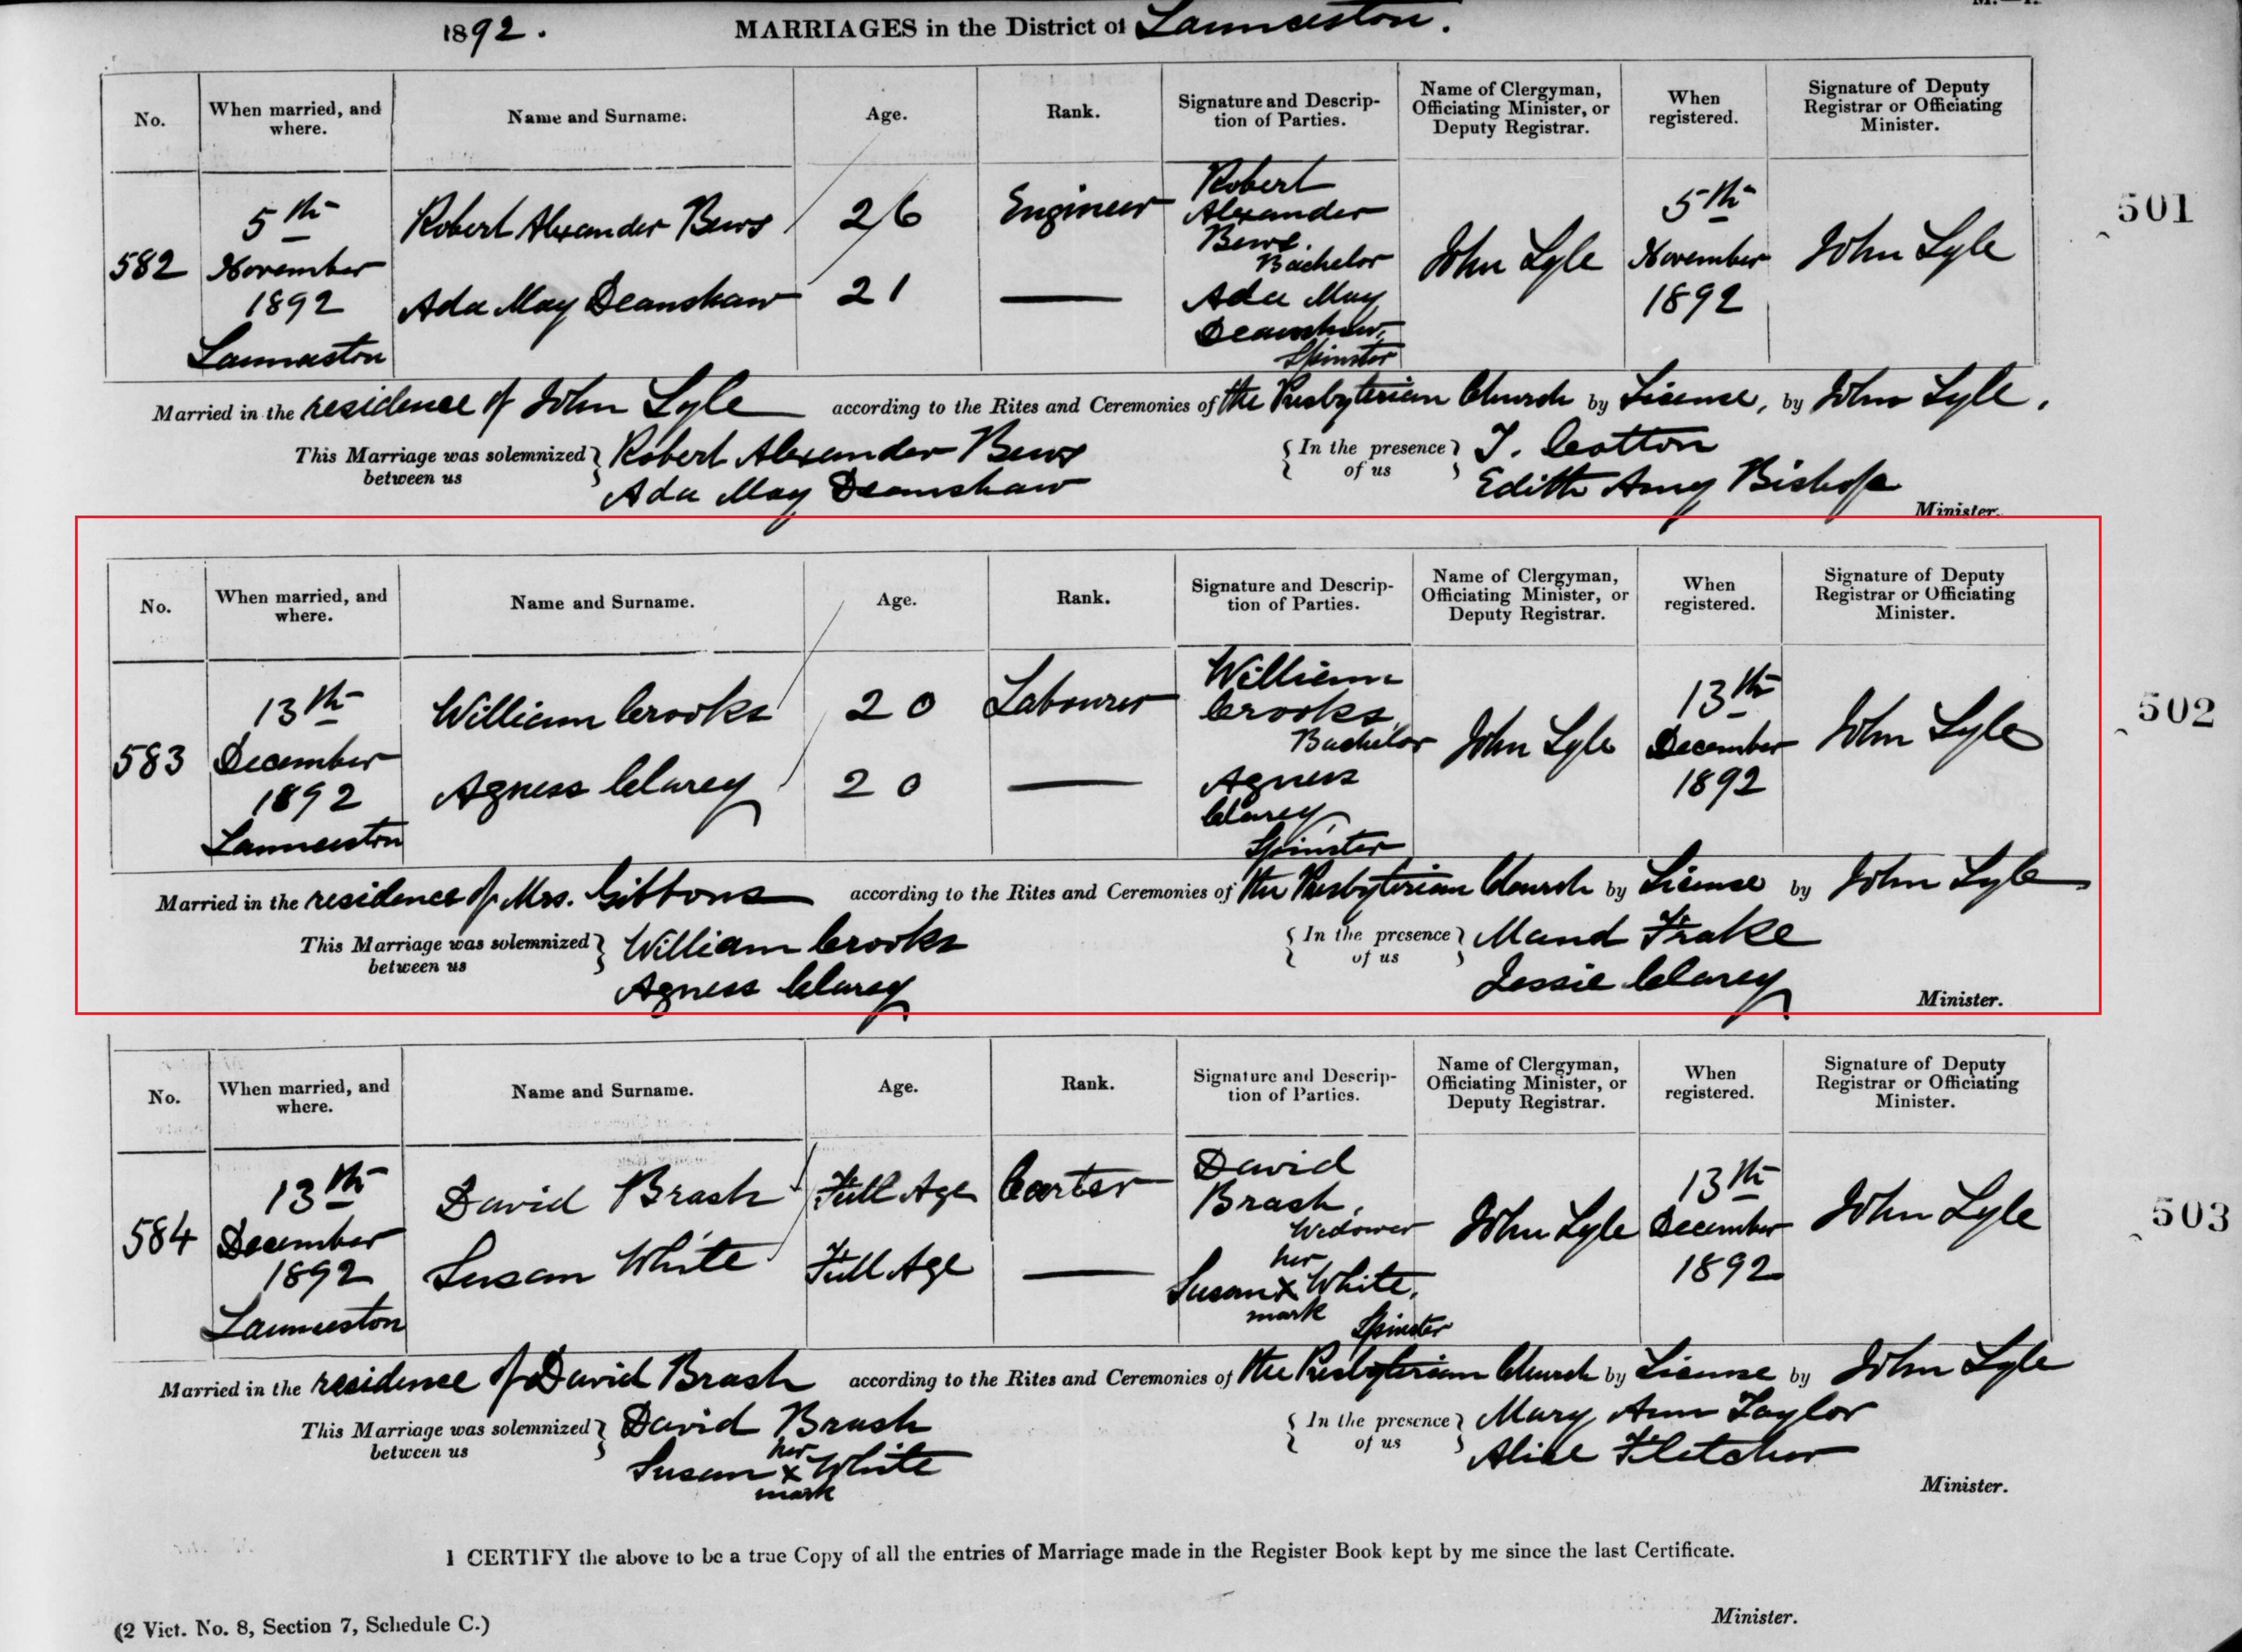 1892. MARRIAGES in the District of Launceston.
No. When married, and where. Name and Surname. Age. Rank. Signature and Description of Parties. Name of Clergyman, Officiating Minister, or Deputy Registrar. When registered. Signature of Deputy Registrar or Officiating Minister.
582 5th November 1892 Launceston
Robert Alexander Bews 26 Engineer Robert Alexander Bews. Bachelor
Ada May Deanshaw 21 — Ada May Deanshaw, Spinster
John Lyle 5th November 1892 John Lyle
501
Married in the residence of John Lyle according to the Rites and Ceremonies of the Presbyterian Church by License, by John Lyle.
This Marriage was solemnized between us } Robert Alexander Bews { In the presence of us } T. Cotton
Ada May Deanshaw Edith Amy Bishop
Minister.
No. When married, and where. Name and Surname. Age. Rank. Signature and Description of Parties. Name of Clergyman, Officiating Minister, or Deputy Registrar. When registered. Signature of Deputy Registrar or Officiating Minister.
583 13th December 1892 Launceston
William Crooks 20 Labourer William Crooks, Bachelor
Agness Clarey 20 — Agness Clarey, Spinster
John Lyle 13th December 1892 John Lyle
502
Married in the residence of Mrs. Gibbons according to the Rites and Ceremonies of the Presbyterian Church by License by John Lyle
This Marriage was solemnized between us } William Crooks { In the presence of us } Maud Frake
Agness Clarey Jessie Clarey
Minister.
No. When married, and where. Name and Surname. Age. Rank. Signature and Description of Parties. Name of Clergyman, Officiating Minister, or Deputy Registrar. When registered. Signature of Deputy Registrar or Officiating Minister.
584 13th December 1892 Launceston
David Brash Full Age Carter David Brash, Widower
Susan White Full Age — Susan her x mark White, Spinster
John Lyle 13th December 1892 John Lyle
503
Married in the residence of David Brash according to the Rites and Ceremonies of the Presbyterian Church by License by John Lyle
This Marriage was solemnized between us } David Brash { In the presence of us } Mary Ann Taylor
Susan her x mark White Alice Fletcher
Minister.
I CERTIFY the above to be a true Copy of all the entries of Marriage made in the Register Book kept by me since the last Certificate.
(2 Vict. No. 8, Section 7, Schedule C.) Minister.